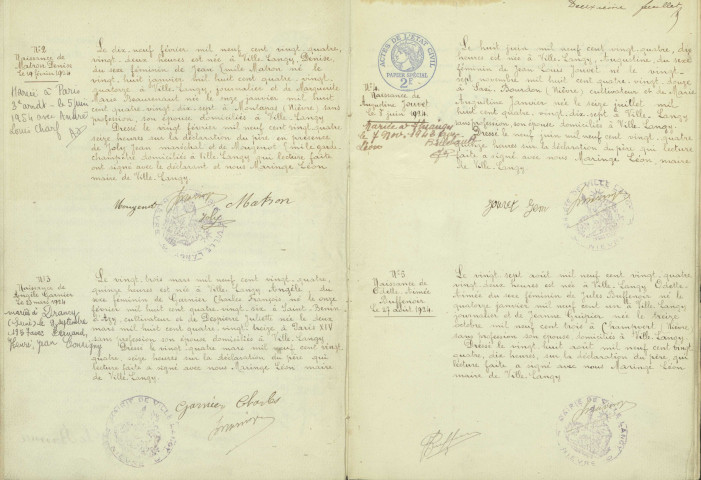 N°2
Naissance de
Matron Denise
Le 19 février 1924
Mariée à Paris
3e arrdt - le 5 juin
1954 avec André
Louis Charf
Le dix-neuf février mil neuf cent vingt-quatre,
vingt-deux heures est née à Ville-Langy, Denise,
du sexe féminin de Jean Emile Matron né le
vingt huit janvier mil huit cent quatre-vingt-
quatorze à Ville-Langy, journalier et de Marguerite
Marie née le onze janvier mil huit
cent quatre-vingt-dix-sept à Montaron (Nièvre) sans
profession, son épouse domiciliés à Ville-Langy.
Dressé le vingt février mil neuf cent vingt-quatre
seize heures sur la déclaration du père en présence
de Joly Jean maréchal et de Mougenot Emile garde-
champêtre domiciliés à Ville-Langy qui lecture faite
ont signé avec le déclarant et nous Marringe Léon,
maire de Ville-Langy.
Mougenot Joly Matron
N°3
Naissance de
Angèle Garnier
Le 23 mars 1924
mariée à Drancy
(Seine) le septembre
avec
Henri, Jean
Le vingt-trois mars mil neuf cent vingt-quatre,
quinze heures est née à Ville-Langy Angèle, du
sexe féminin de Garnier Charles François, né le onze
février mil huit cent quatre-vingt-dix à Saint-
d'Azy, cultivateur et de Juliette née le
mars mil huit cent quatre-vingt-treize à Paris XIV
sans profession son épouse domiciliés à Ville-Langy
Dressé le vingt-quatre mars mil neuf cent vingt-
quatre, seize heures sur la déclaration du père qui
lecture faite a signé avec nous Marringe Léon maire
de Ville-Langy.
Garnier Charles
MAIRIE DE VILLE LANGY
NIÈVRE
Deuxième feuillet
ACTES DE L'ETAT CIVIL
PAPIER SPÉCIAL
2F
N°4
Naissance de
Augustine Jouvet
Le 8 juin 1924
Mariée à
Léon
Le huit juin mil neuf cent vingt-quatre, dix
heures est née à Ville-Langy, Augustine, du sexe
féminin de Jean Louis Jouvet né le vingt-
sept novembre mil huit cent quatre-vingt-douze
à (Nièvre) cultivateur et de Marie
Augustine née le seize juillet mil
huit cent quatre-vingt-dix-sept à Ville-Langy
sans profession, son épouse domiciliés à Ville-Langy.
Dressé le huit juin mil neuf cent vingt-quatre
heures sur la déclaration du père qui lecture
faite a signé avec nous Marringe Léon maire
de Ville-Langy.
Jouvet Jean
N°5
Naissance de
Odette Aimée
Buffenoir
Le 27 août 1924
Le vingt sept août mil neuf cent vingt-quatre
vingt-quatre heures est née à Ville-Langy Odette
Aimée du sexe féminin de Jules Buffenoir né le
quatorze janvier mil neuf cent à Ville-Langy
journalier et de Jeanne née le treize
octobre mil neuf cent trois à Champvert, Nièvre
sans profession son épouse domiciliés à Ville-Langy
Dressé le vingt huit août mil neuf cent vingt-
quatre, dix heures, sur la déclaration du père qui
lecture faite a signé avec nous Marringe Léon
maire de Ville-Langy
MAIRIE DE VILLE LANGY
NIÈVRE